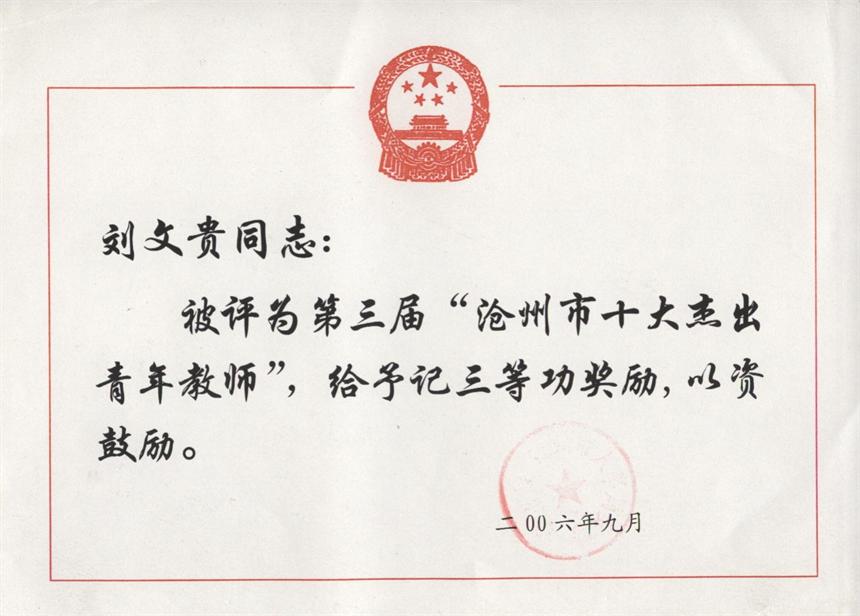 刘文贵同志：
被评为第三届“沧州市十大杰出
青年教师”，给予记三等功奖励，以资
鼓励。
二00六年九月